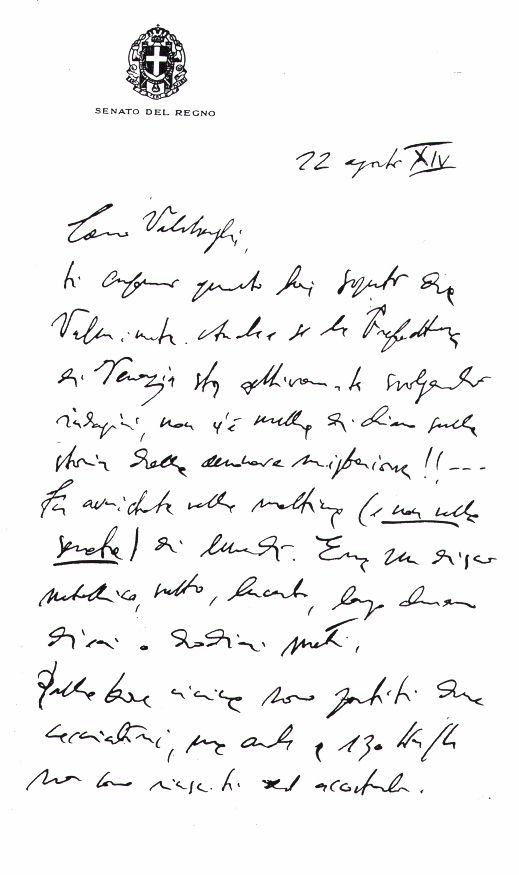 SENATO DEL REGNO
22 agosto XIV
Caro Valdonghi,
ti confermo quanto hai saputo da
Valminuta. Anche se la Prefettura
di Venezia sta attivamente svolgendo
indagini, non c'è nulla di chiaro sulla
storia della aeronave misteriosa!! ---
Fu avvistata nella mattina (e non nella
serata) di lunedì. Era un disco
metallico, netto, lucente, largo
dieci o dodici metri,
Dalla base vicina sono partiti due
cacciatori, ma anche a 130 km/h
non sono riusciti ad accostarlo.